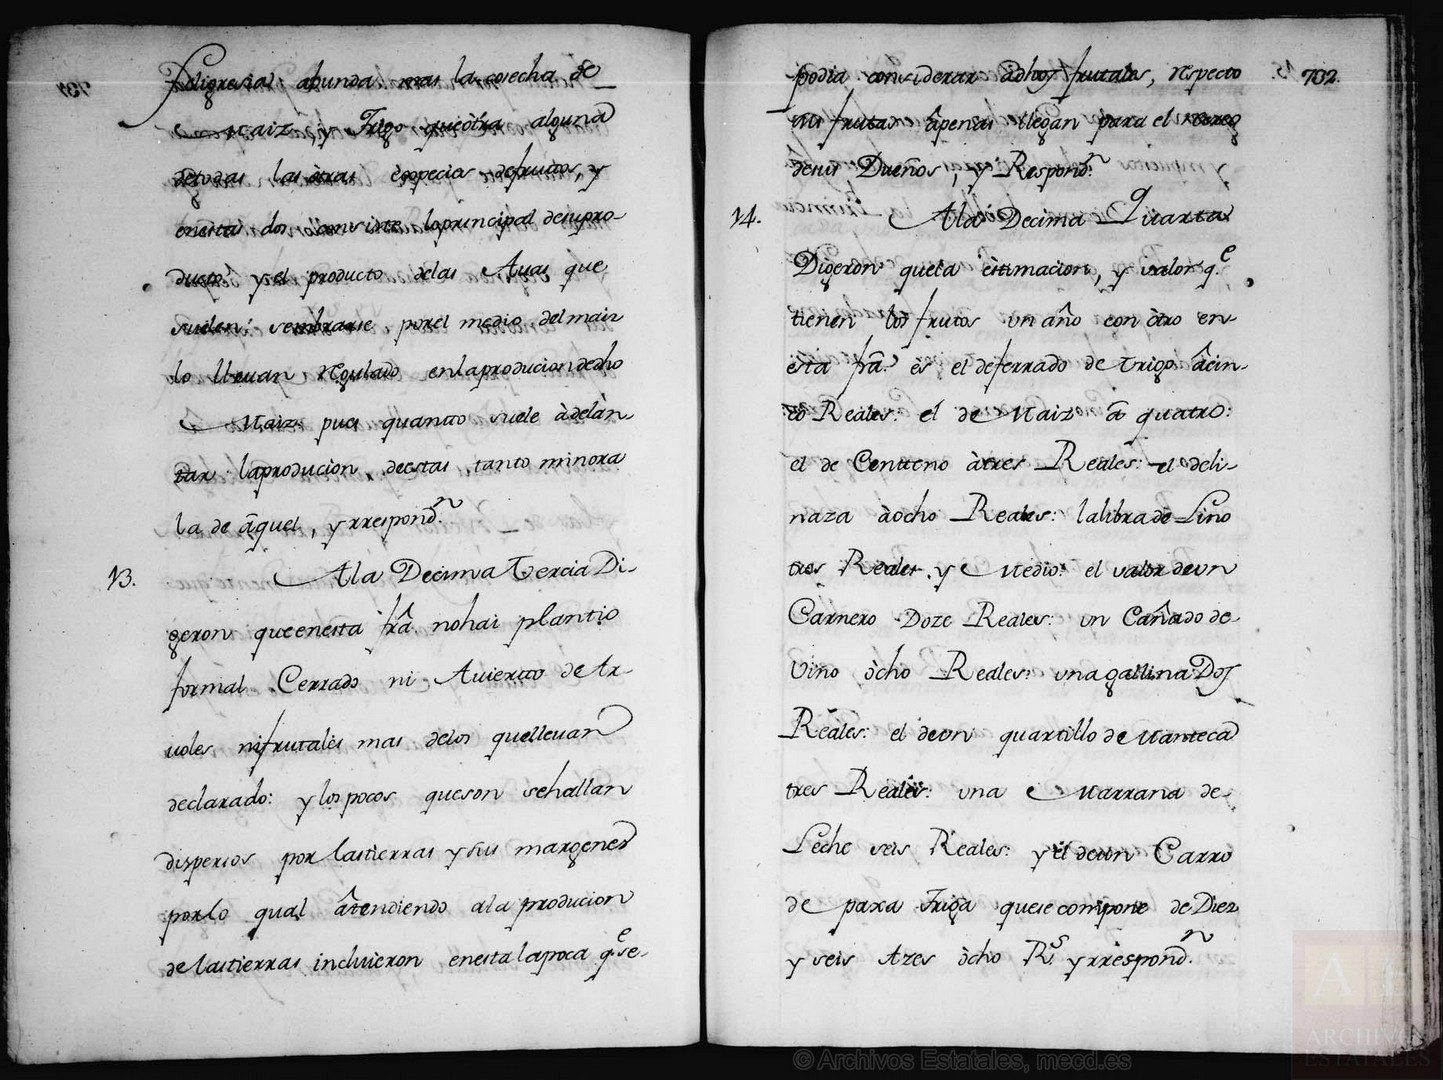 feligresia abunda mas la cosecha de
Maiz, y Trigo que ôtra alguna
de todas las ôtras especies de frutos, y
en estas dos consiste lo principal de su pro-
ducto y el producto de las Avas que
suelen sembrarse por el medio del maiz
lo llevan regulado en la producion de dho
Maiz pues quanto suele àdelàn-
tar la producion de estas tanto minora
la de âquel, y rrespond.n
13. A la Decima Tercia Di-
geron que en esta frâ. no hai plantio
formal Cerrado ni Avierto de Ar
voles ni frutalès mas de los que llevan
declarado: y los pocos que son se hallan
dispersos por las tierras y sus margenes
por lo qual âtendiendo a la producion
de las tierras incluieron en esta la poca q.e se-
podia considerar a dhos frutales, respecto
sus frutas âpenas llegan para el
de sus Dueños, y Respond.n
702.
14. A la Decima Quarta
Digeron que la estimacion, y valor q.e
tienen los frutos un año con òtro en
esta frâ. es el de ferrado de trigo â cin-
co Reales: el de Maiz â quatro:
el de Centeno à tres Reales: el de li-
naza à ocho Reales: la libra de Lino
tres Reales y Medio: el valor de un
Carnero Doze Reales: un Cañado de
Vino òcho Reales: una gallina Dos
Reales: el de un quartillo de Manteca
tres Reales: una Marrana de
Leche seis Reales: y el de un Carro
de paxa Triga que se compone de Diez
y seis Azes òcho R.s y rrespond.n
© Archivos Estatales, mecd.es
AE
ARCHIVOS
ESTATALES